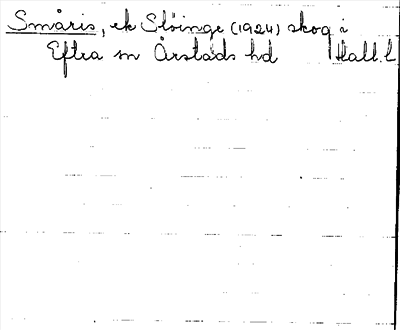 Småris, ek Slöinge (1924) skog i
Eftra sn Årstads hd Hall. l